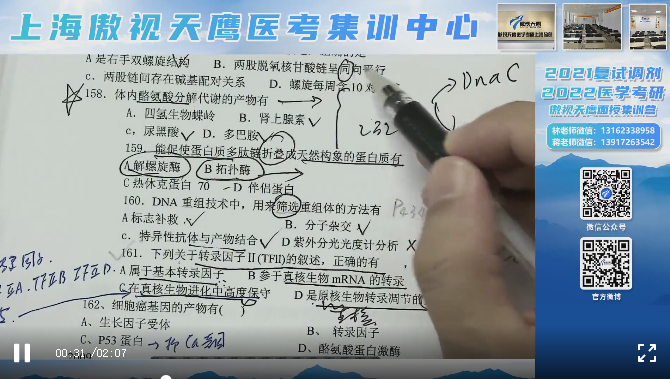 上海傲视天鹰医考集训中心
A 是右手双螺旋结构 B. 两股脱氧核苷酸链呈同向平行
c. 两股链间存在碱基配对关系 D. 螺旋每周含 10 对
DnaC
158. 体内酪氨酸分解代谢的产物有
A. 四氢生物蝶岭 B. 肾上腺素
c, 尿黑酸 D. 多巴胺
232
159. 能促使蛋白质多肽链折叠成天然构象的蛋白质有
A 解螺旋酶 B 拓扑酶
C 热休克蛋白 70 D 伴侣蛋白
160. DNA 重组技术中，用来筛选重组体的方法有
A 标志补救 B. 分子杂交
c. 特异性抗体与产物结合 D 紫外分光光度计分析
161. 下列关于转录因子 II(TFII)的叙述，正确的有
A 属于基本转录因子 B 参于真核生物 mRNA 的转录
C 在真核生物进化中高度保守 D 是原核生物转录调节的
真核
162、细胞癌基因的产物有( )
A、生长因子受体 B、转录因子
C、P53 蛋白 D、酪氨酸蛋白激酶
2021复试调剂
2022医学考研
傲视天鹰面授集训营
林老师微信：13162338958
蒋老师微信：13917263542
微信公众号
官方微博
00:31 / 02:07